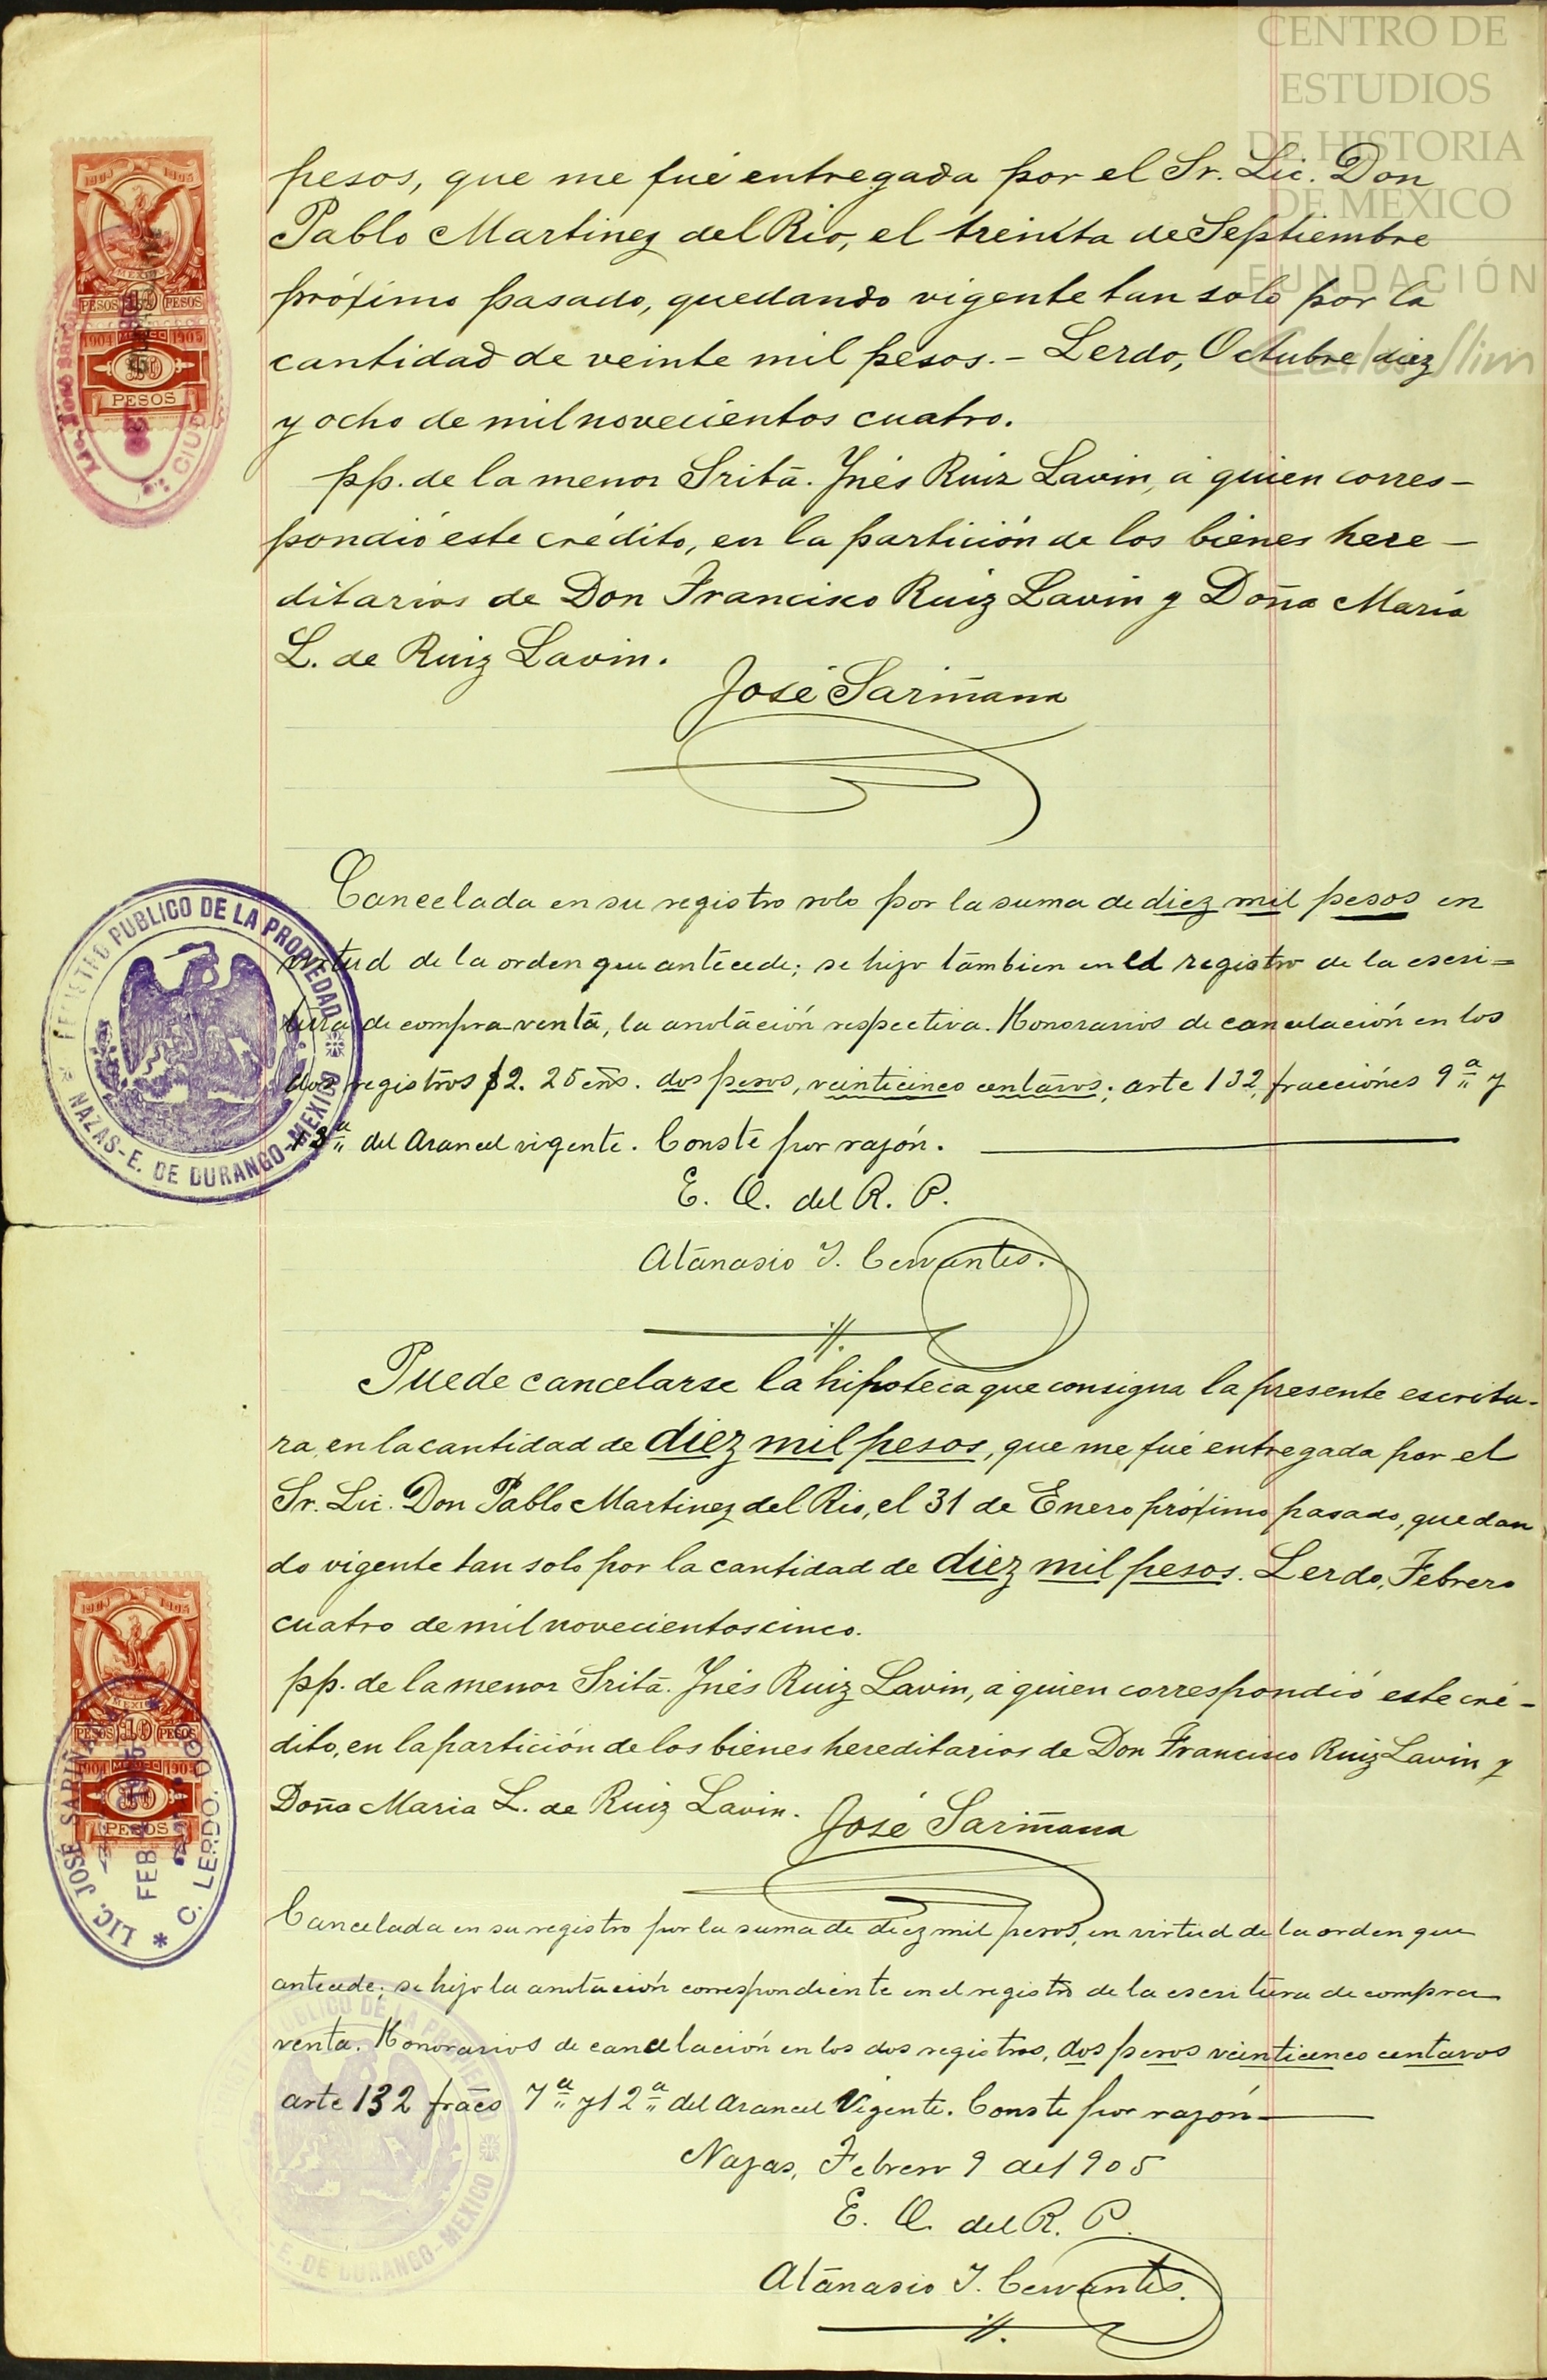 CENTRO DE
ESTUDIOS
DE HISTORIA
DE MEXICO
FUNDACIÓN
Carlos Slim
pesos, que me fué entregada por el Sr. Lic. Don
Pablo Martinez del Rio, el treinta de Septiembre
próximo pasado, quedando vigente tan solo por la
cantidad de veinte mil pesos. - Lerdo, Octubre diez
y ocho de mil novecientos cuatro.
pp. de la menor Srita. Ynés Ruiz Lavin, á quien corres-
pondió este crédito, en la partición de los bienes here-
ditarios de Don Francisco Ruiz Lavin y Doña María
L. de Ruiz Lavin.
José Sariñana
Cancelada en su registro solo por la suma de diez mil pesos en
virtud de la orden que antecede; se hizo tambien en el registro de la escri=
tura de compra-venta, la anotación respectiva. Honorarios de cancelación en los
dos registros $2. 25 cñs. dos pesos, veinticinco centavos; arte 132, fracciónes 9ª y
13ª del Arancel vigente. Conste por razón.
E. Q. del R. P.
Atanasio I. Cervantes.
Puede cancelarse la hipoteca que consigna la presente escritu-
ra, en la cantidad de diez mil pesos, que me fué entregada por el
Sr. Lic. Don Pablo Martinez del Rio, el 31 de Enero próximo pasado, quedan
do vigente tan solo por la cantidad de diez mil pesos. Lerdo, Febrero
cuatro de mil novecientos cinco.
pp. de la menor Srita. Ynés Ruiz Lavin, á quien correspondió este cré-
dito, en la partición de los bienes hereditarios de Don Francisco Ruiz Lavin y
Doña Maria L. de Ruiz Lavin.
José Sariñana
Cancelada en su registro por la suma de diez mil pesos, en virtud de la orden que
antecede; se hizo la anotación correspondiente en el registro de la escritura de compra
venta. Honorarios de cancelación en los dos registros, dos pesos veinticinco centavos
arte 132 fracs 7ª y 12ª del Arancel Vigente. Conste por razón
Nazas, Febrero 9 de 1905
E. Q. del R. P.
Atanasio I. Cervantes.
1904 1905
MEXICO
PESOS 10 PESOS
1904 MEXICO 1905
10
PESOS
Lic. José Sari
CIUD
REGISTRO PUBLICO DE LA PROPIEDAD
NAZAS-E. DE DURANGO-MEXICO
1904 1905
MEXICO
PESOS 10 PESOS
1904 MEXICO 1905
10
PESOS
LIC. JOSÉ SARIÑANA
FEB 4 1905
C. LERDO. DGO.
PUBLICO DE LA PROPIEDAD
E. DE DURANGO-MEXICO